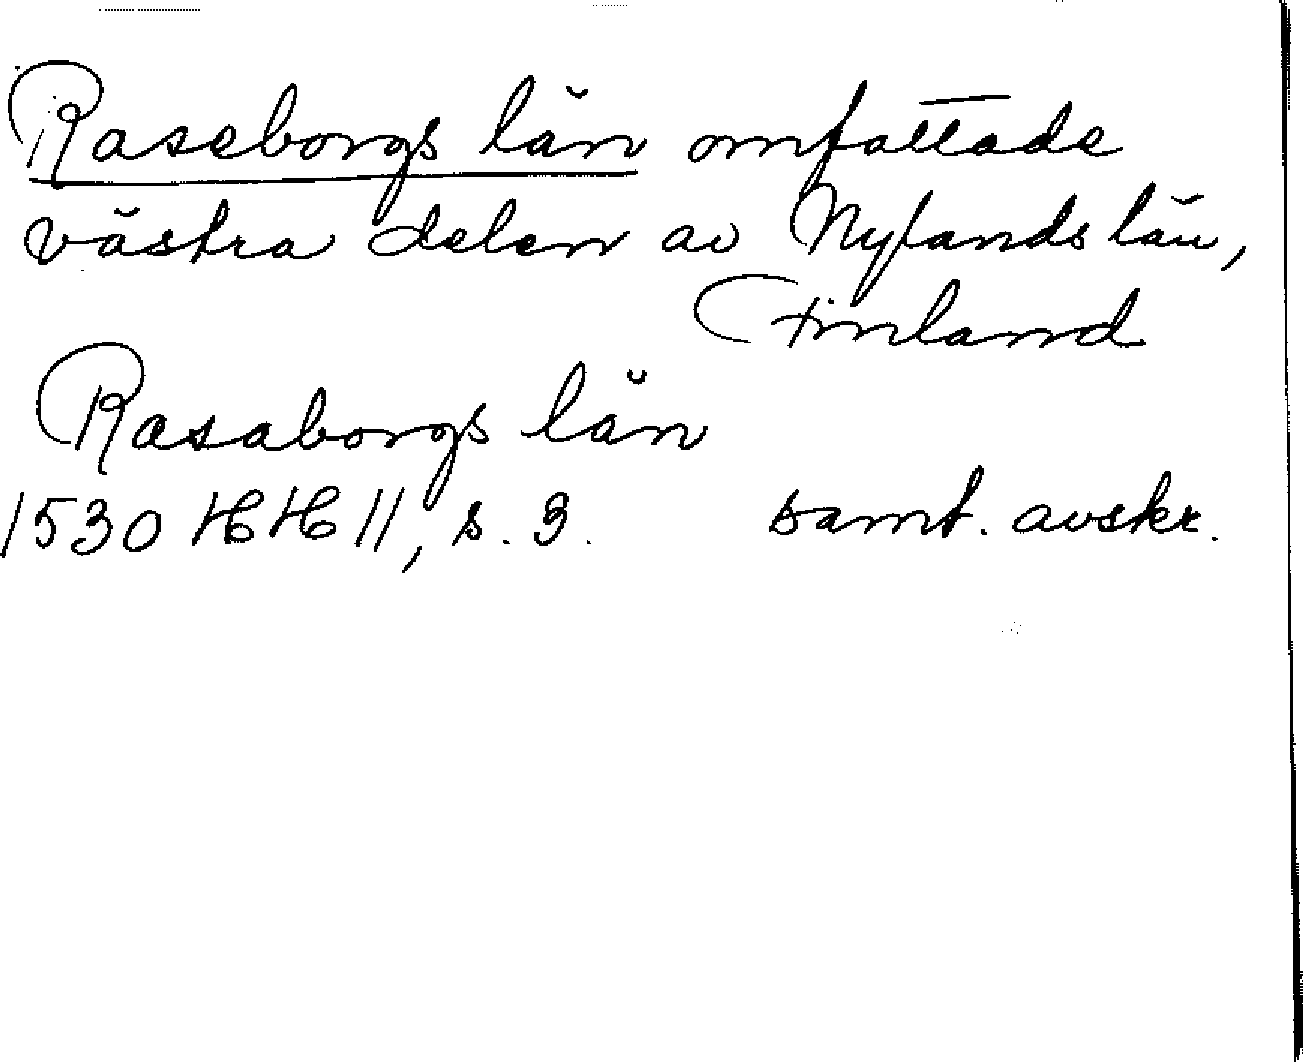 Raseborgs län omfattade
västra delen av Nylands län,
Finland
Rasaborgs län
1530 HH 11, s. 3. samt. avskr.